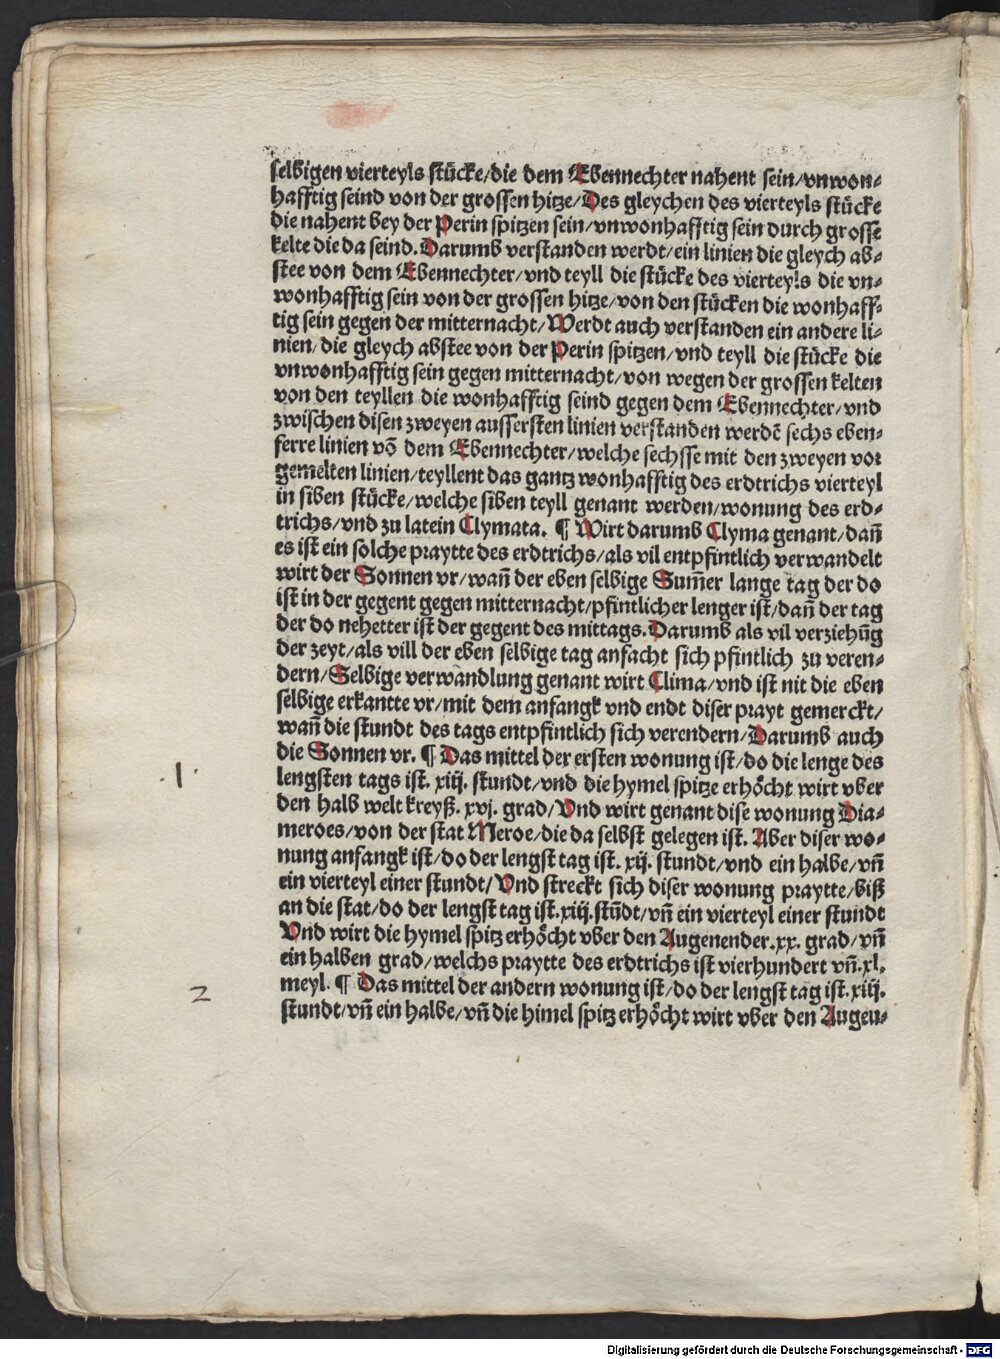 selbigen vierteyls stücke/die dem Ebennechter nahent sein/vnwon-
hafftig seind von der grossen hitze/Des gleychen des vierteyls stücke
die nahent bey der Perin spitzen sein/vnwonhafftig sein durch grosse
kelte die da seind. Darumb verstanden werdt/ein linien die gleych ab-
stee von dem Ebennechter/vnd teyll die stücke des vierteyls die vn-
wonhafftig sein von der grossen hitze/von den stücken die wonhaff-
tig sein gegen der mitternacht/Werdt auch verstanden ein andere li-
nien/die gleych abstee von der Perin spitzen/vnd teyll die stücke die
vnwonhafftig sein gegen mitternacht/von wegen der grossen kelten
von den teyllen die wonhafftig seind gegen dem Ebennechter/vnd
zwischen disen zweyen aussersten linien verstanden werdē sechs eben-
ferre linien vō dem Ebennechter/welche sechsse mit den zweyen vor
gemelten linien/teyllent das gantz wonhafftig des erdtrichs vierteyl
in siben stücke/welche siben teyll genant werden/wonung des erd-
trichs/vnd zu latein Clymata. ¶ Wirt darumb Clyma genant/dañ
es ist ein solche praytte des erdtrichs/als vil entpfintlich verwandelt
wirt der Sonnen vr/wañ der eben selbige Sum̃er lange tag der do
ist in der gegent gegen mitternacht/pfintlicher lenger ist/dañ der tag
der do nehetter ist der gegent des mittags. Darumb als vil verziehũg
der zeyt/als vill der eben selbige tag anfacht sich pfintlich zu veren-
dern/Selbige verwandlung genant wirt Clima/vnd ist nit die eben
selbige erkantte vr/mit dem anfangk vnd endt diser prayt gemerckt/
wañ die stundt des tags entpfintlich sich verendern/Darumb auch
die Sonnen vr. ¶ Das mittel der ersten wonung ist/do die lenge des
.1.
lengsten tags ist. xiij. stundt/vnd die hymel spitze erhöcht wirt vber
den halb welt kreyß. xvj. grad/Vnd wirt genant dise wonung Dia-
meroes/von der stat Meroe/die da selbst gelegen ist. Aber diser wo-
nung anfangk ist/do der lengst tag ist. xij. stundt/vnd ein halbe/vñ
ein vierteyl einer stundt/Vnd streckt sich diser wonung praytte/biß
an die stat/do der lengst tag ist.xiij.stũdt/vñ ein vierteyl einer stundt
Vnd wirt die hymel spitz erhöcht vber den Augenender.xx. grad/vñ
ein halben grad/welchs praytte des erdtrichs ist vierhundert vñ.xl.
meyl. ¶ Das mittel der andern wonung ist/do der lengst tag ist.xiij.
2
stundt/vñ ein halbe/vñ die himel spitz erhöcht wirt vber den Augen-
Digitalisierung gefördert durch die Deutsche Forschungsgemeinschaft - DFG